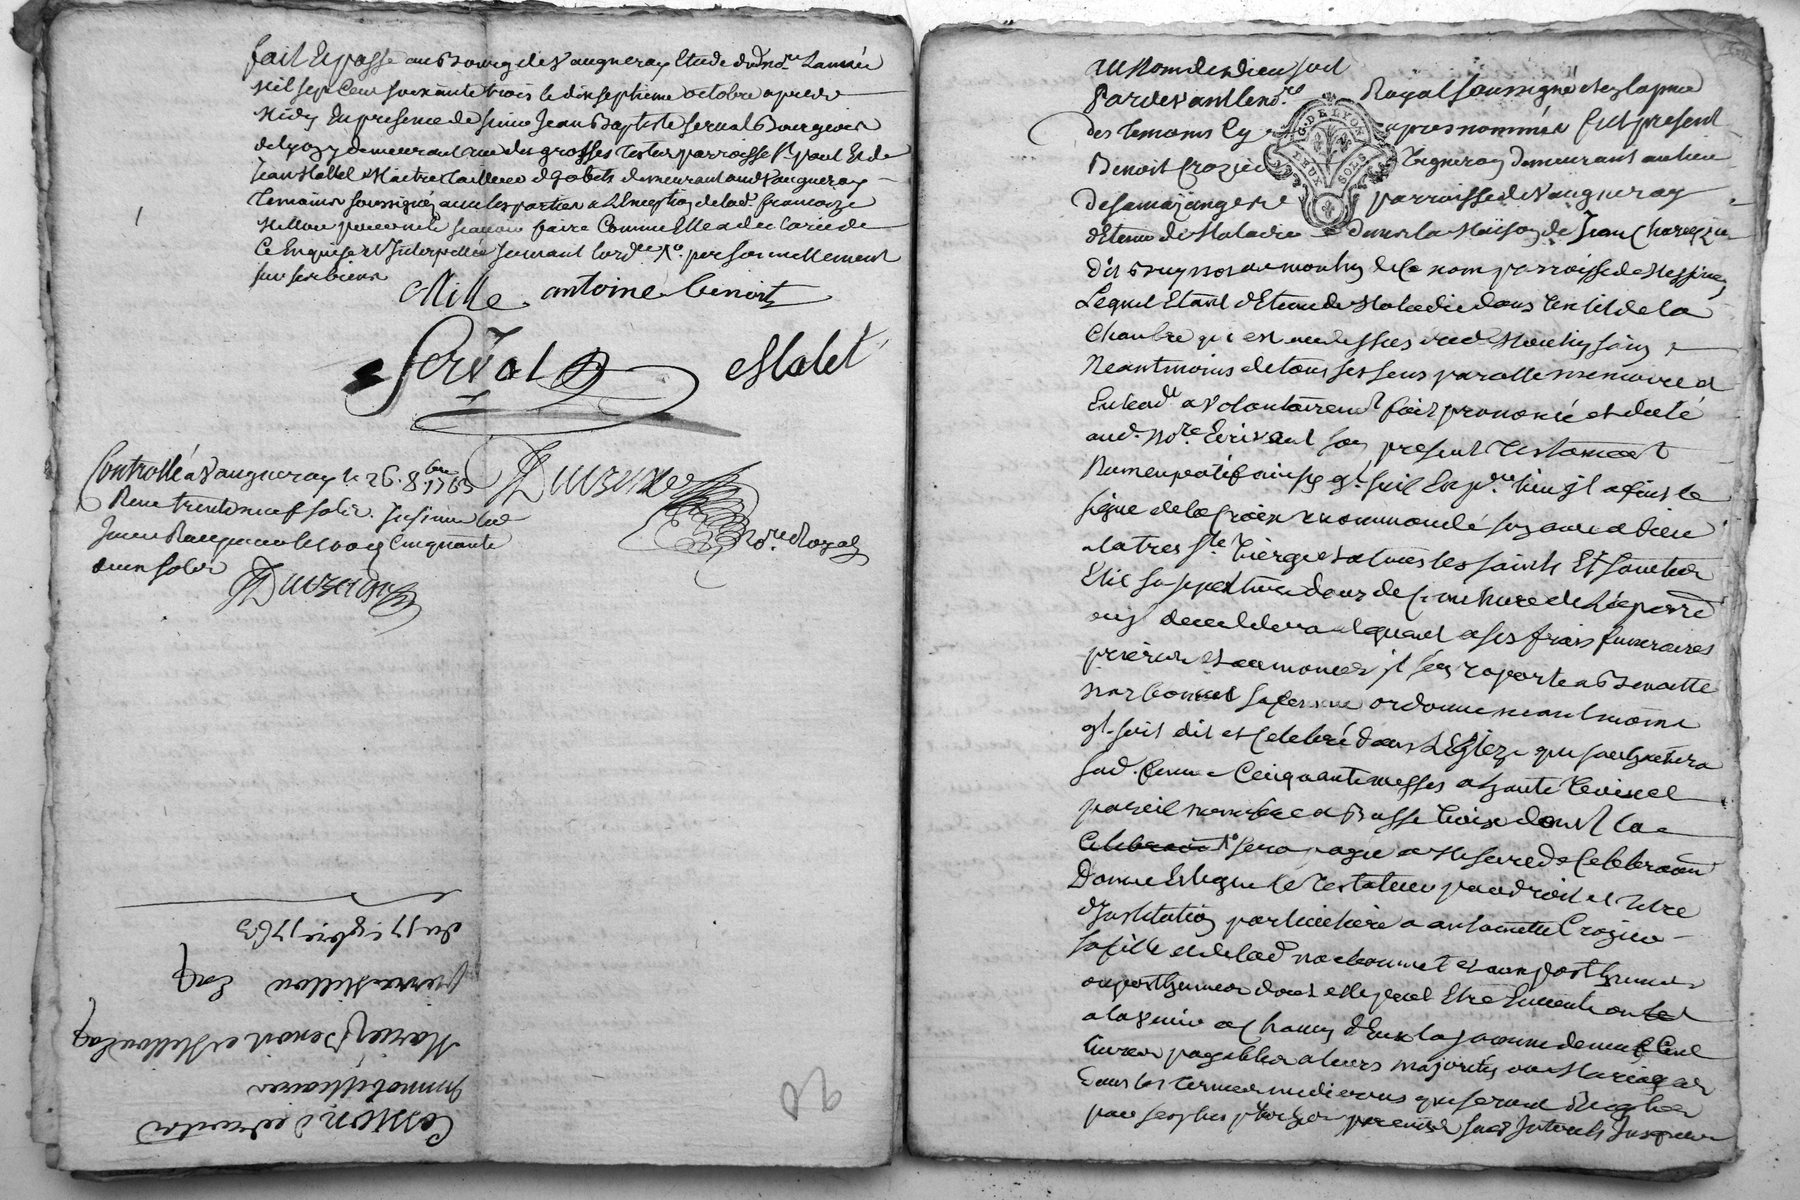 fait et passé au Bourg de Vaugneray Etude dud. nore. Lannée
Mil sept Cent soixante trois le dix septieme octobre apres
Midy En presence de sieur Jean Baptiste Serval Bourgeois
de Lyon y demeurant rue des grosses Testes parroisse St. paul Et de
Jean Mallet Maitre tailleur d'habits demeurant aud. Vaugneray
Temoins soussignés avec les parties a L'Exception de lad. francoize
Millou pour ne le scavoir faire Comme Elle a declaré de
Ce Enquise et Interpellée suivant Lord.ce personnellement
sur ses biens
Mille antoine benoit
Serval Malet
Controllé a Vaugneray le 26. 8bre 1763
Reçu trente neuf sols. Insinué led
Jour Reçu cinquante
deux sols
Duvzeux Nore. Royal
Cession de droits
Immobilliaires
Marie Benoit et Millou
pierre Millou
du 17 8bre 1763
Au Nom de dieu soit
Pardevant le nore. Royal soussigné et en la presence
des Temoins Cy apres nommés fut present
Benoit Crozier Vigneron demeurant au lieu
de parroisse de Vaugneray
detenu de Maladie dans la Maison de Jean
dit au moulin de Ce nom parroisse de Messimy
Lequel Etant detenu de Maladie dans un lit de la
Chambre qui est au dessus dud. Moulin sain
Neantmoins de tous ses sens parolle memoire et
Entend.t a Volontairement fait prononcé et dicté
aud. Nore. Ecrivant son present testament
Nuncupatif ainsy qt. suit En p.r lieu Il a fait le
signe de la Croix recommandé son ame a dieu
a la tres ste. Vierge et a tous les saints Et saintes
Elit sa sepulture dans le Cimetiere de L'eg. parre
ou Il decedera Et quant a ses frais funeraires
prieres et aumones il s'en raporte a Benoitte
Narbonnet sa femme ordonne neantmoins
qt. soit dit et Celebré dans L'Eglize que souhaitera
sad. femme Cinquante messes a haute Voix et
pareil nombre a Basse Voix dont la
Celebraon sera payée a Mesure de Celebraon
Donne Et legue le Testateur par droit et titre
d'Institution particuliere a antoinette Crozier
sa fille et de lad. Narbonnet et aux posthumes
ou posthumes dont elle peut Etre Enceinte
a la venir a Chacun d'Eux la somme de neuf Cent
livres payables a leurs majorités ou Mariages
dans les termes mediocres qui seront Reglés
par ses plus proches parents sans Interets Jusques